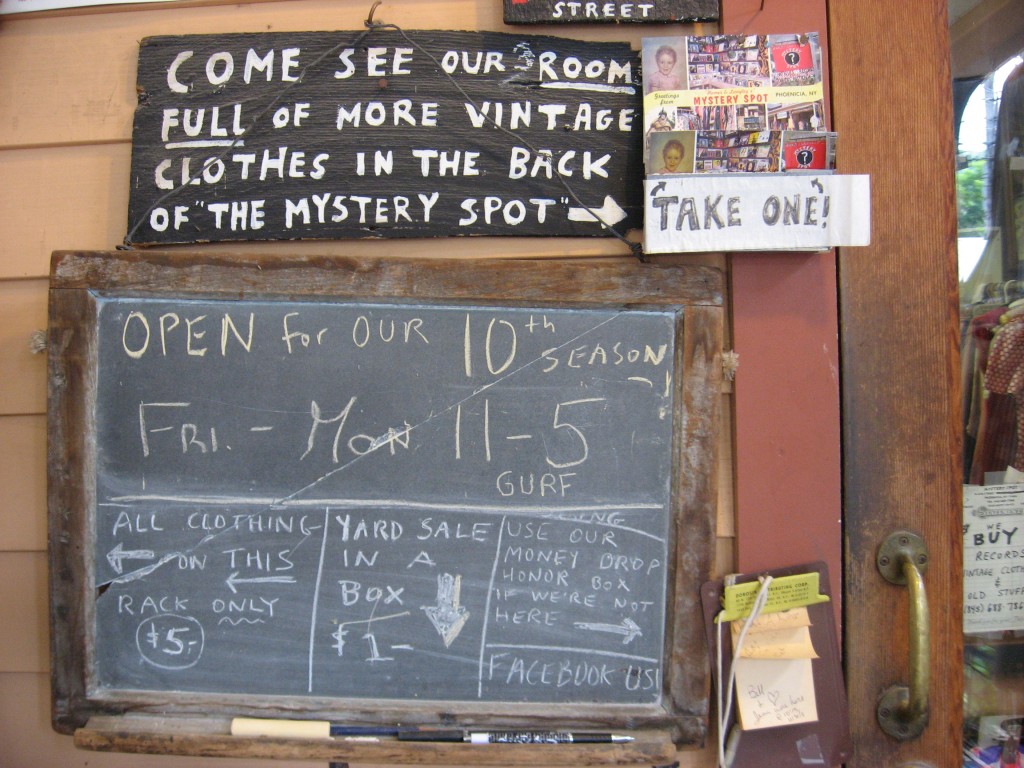 STREET
COME SEE OUR ROOM
FULL OF MORE VINTAGE
CLOTHES IN THE BACK
OF "THE MYSTERY SPOT"
Greetings from
MYSTERY SPOT
PHOENICIA, NY
TAKE ONE!
OPEN for OUR 10th SEASON!
FRI. - MON 11-5
GURF
ALL CLOTHING
ON THIS
RACK ONLY
$5-
YARD SALE
IN A
BOX
$1-
USE OUR
MONEY DROP
HONOR BOX
IF WE'RE NOT
HERE
FACEBOOK US!
WE
BUY
RECORDS
VINTAGE CLOTH
&
OLD STUFF